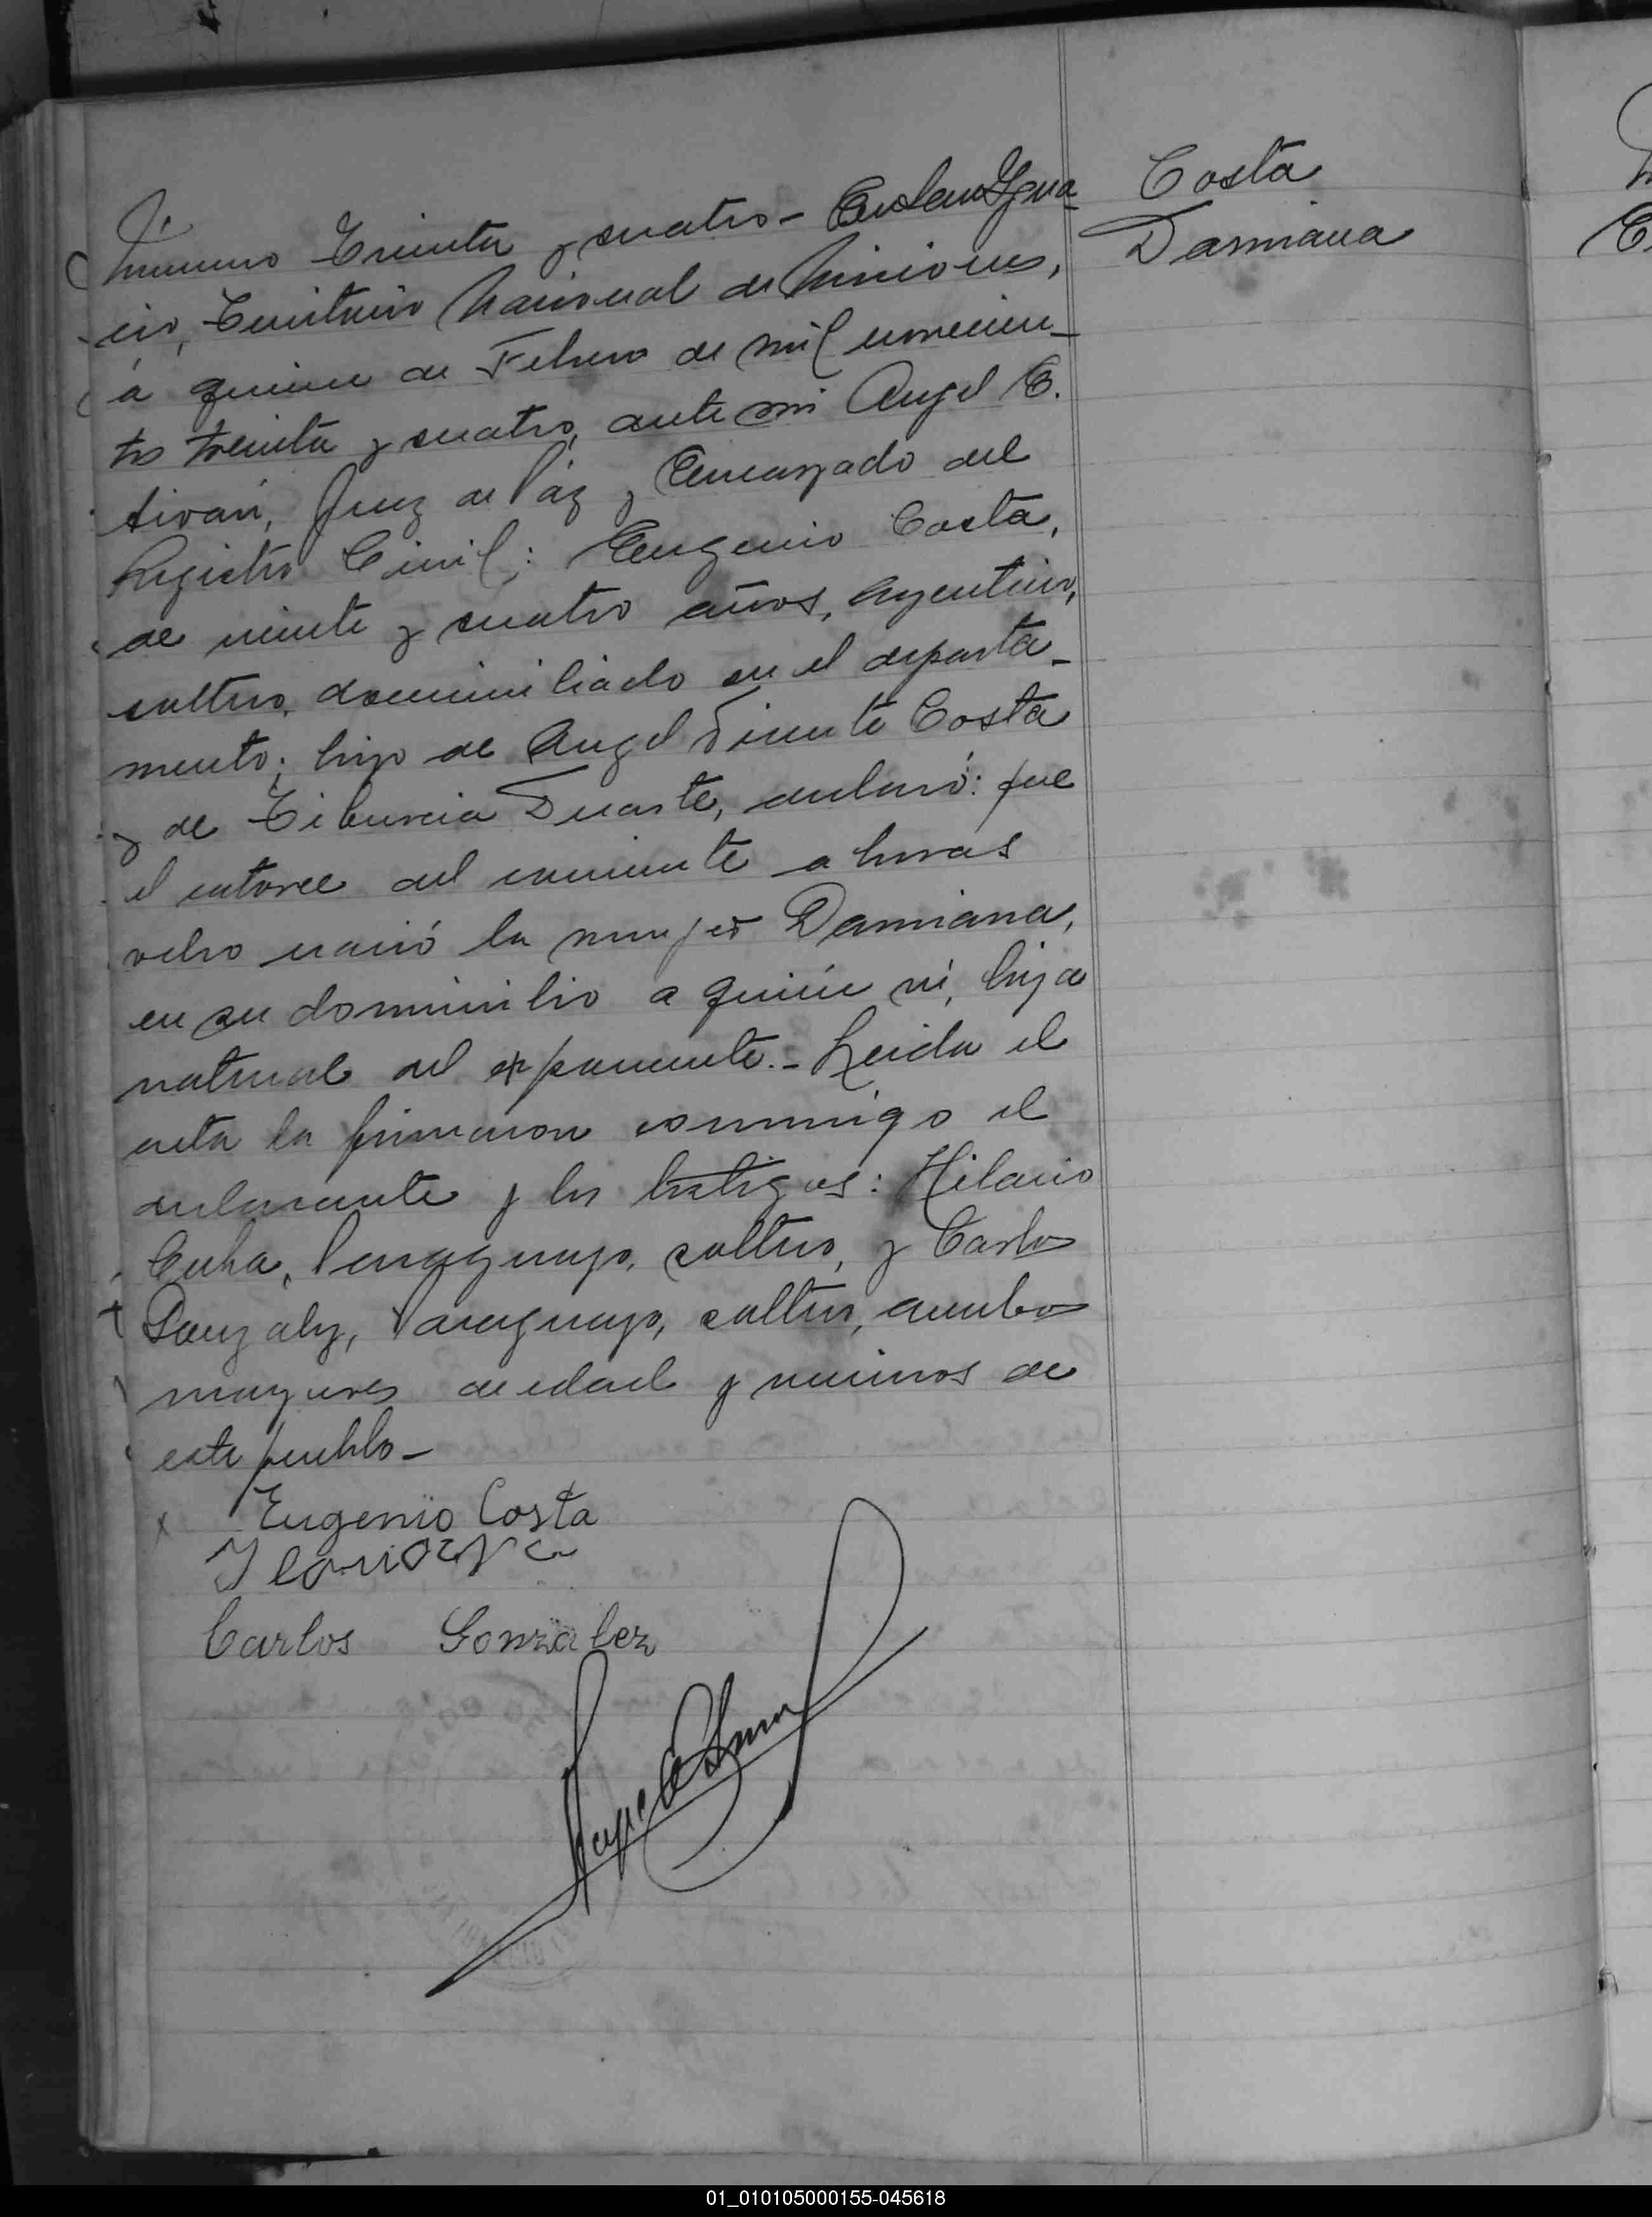 Número Treinta y cuatro - En San Igna-
cio, Territorio Nacional de Misiones,
á quince de Febrero de mil novecien-
tos treinta y cuatro, ante mi Angel E.
Juez de Páz y Encargado del
Registro Civil; Eugenio Costa,
de veinte y cuatro años, Argentino,
soltero, domiciliado en el departa-
mento; hijo de Angel Vicente Costa
y de Tiburcia Duarte, declaró: que
el catorce del corriente a horas
ocho nació la mujer Damiana,
en su domicilio a quién vi, hija
natural del exponente.- Leida el
acta la firmaron conmigo el
declarante y los testigos: Hilario
Paraguayo, soltero, y Carlos
Gonzalez, Paraguayo, soltero, ambos
mayores de edad y vecinos de
este pueblo -
Eugenio Costa
Carlos Gonzalez
Costa
Damiana
01_010105000155-045618